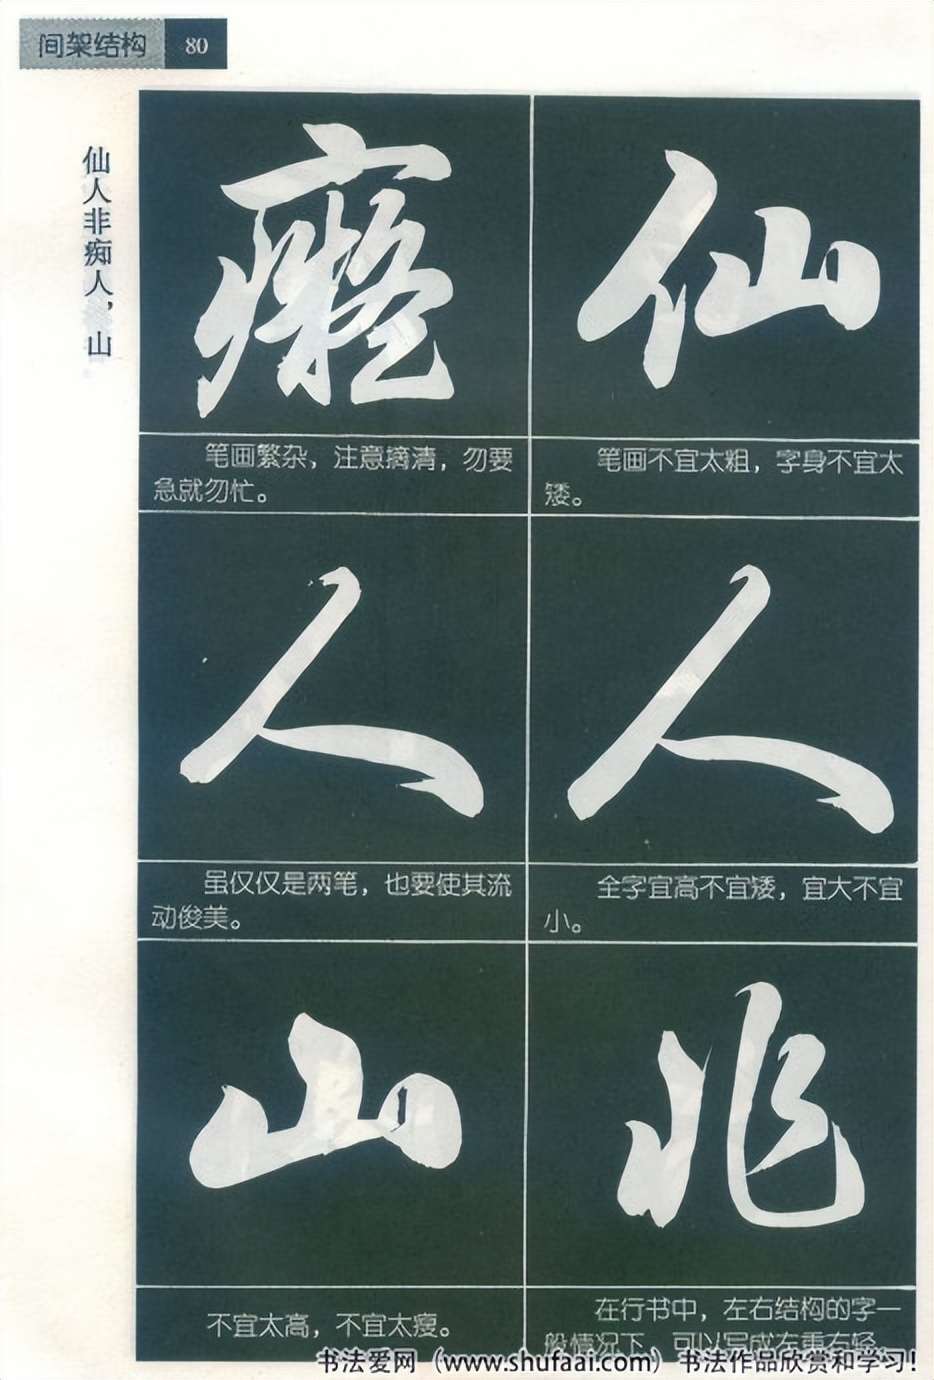 间架结构 80
仙人非痴人，山
仙
笔画不宜太粗，字身不宜太
矮。
人
全字宜高不宜矮，宜大不宜
小。
非
在行书中，左右结构的字一
般情况下，可以写成左重右轻。
癡
笔画繁杂，注意摘清，勿要
急就勿忙。
人
虽仅仅是两笔，也要使其流
动俊美。
山
不宜太高，不宜太瘦。
书法爱网（www.shufaai.com）书法作品欣赏和学习！